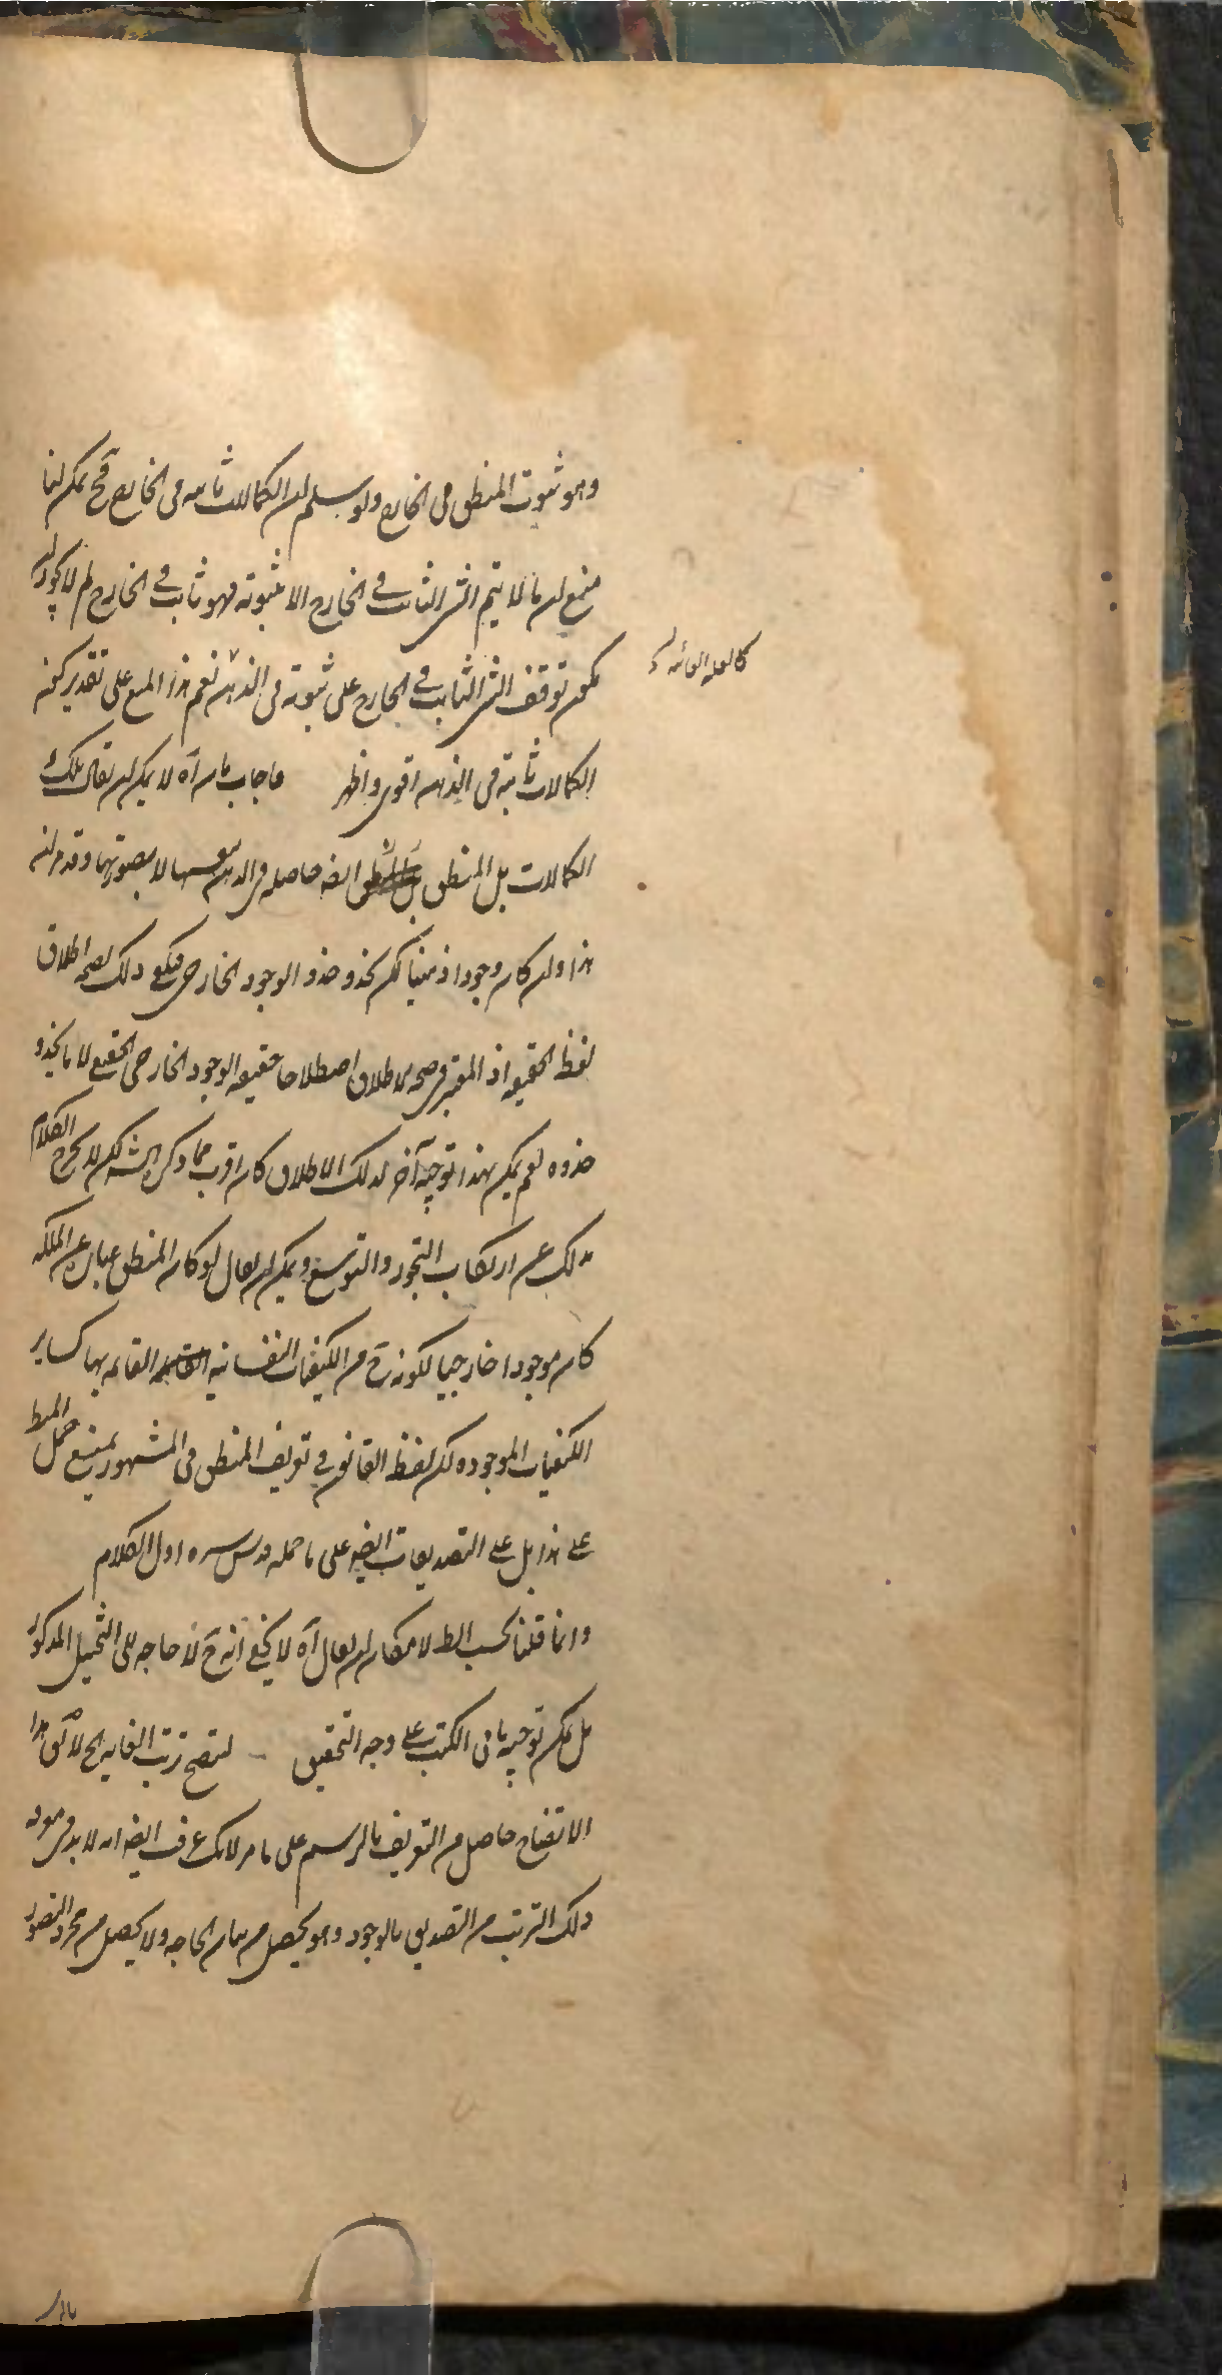 وهو ثبوت المنطق فى الخارج ولو سلم ان الكمالات ثابته فى الخارج فح يمكن لنا
منع ان ما لا يتم الشئ الثابت فى الخارج الا بثبوته فهو ثابت فى الخارج لم لا يجوز ان
يكون توقف الشئ الثابت فى الخارج على ثبوته فى الذهن نعم هذا المنع على تقدير كون
كالعله الغائيه
الكمالات ثابتة فى الذهن اقوى واظهر فاجاب بان آه لا يمكن ان يقال تلك
الكمالات بل المنطق ايضه حاصله فى الذهن بنفسها لا بصورتها وقد مر انه
هذا وان كان وجودا ذهنيا لكن يحذو حذو الوجود الخارجى فيكفى ذلك لصحه اطلاق
لفظ الحقيقه اذ المعتبر فى صحه الاطلاق اصطلاحا حقيقه الوجود الخارجى الحقيقى لا ما يحذو
حذوه نعم يمكن بهذا توجيه آخر لذلك الاطلاق كان اقرب مما ذكره الشه لكن لا يخرج الكلام
بذلك عن ارتكاب التجوز والتوسع ويمكن ان يقال لو كان المنطق عباره عن الملكه
كان موجودا خارجيا لكونه ح من الكيفيات النفسانيه القائمه بها كساير
الكيفيات الموجوده لكن لفظ القانون فى تعريف المنطق فى المشهور يمنع حمل المنط
على هذا بل على التصديقات ايضه على ما حمله قدس سره اول الكلام
وانما قلنا بحسب الظ لامكان ان يقال آه لا يخفى انه ح لا حاجه الى التخييل المذكور
بل يمكن توجيه ما فى الكتب على وجه التحقيق ليتضح ترتب الغايه الخ لا يق هذا
الاتضاح حاصل من التعريف بالرسم على ما مر لانك عرفت ايضه انه لا بد فى
ذلك الترتب من التصديق بالوجود وهو يحصل من بيان الحاجه ولا يحصل من مجرد التصور